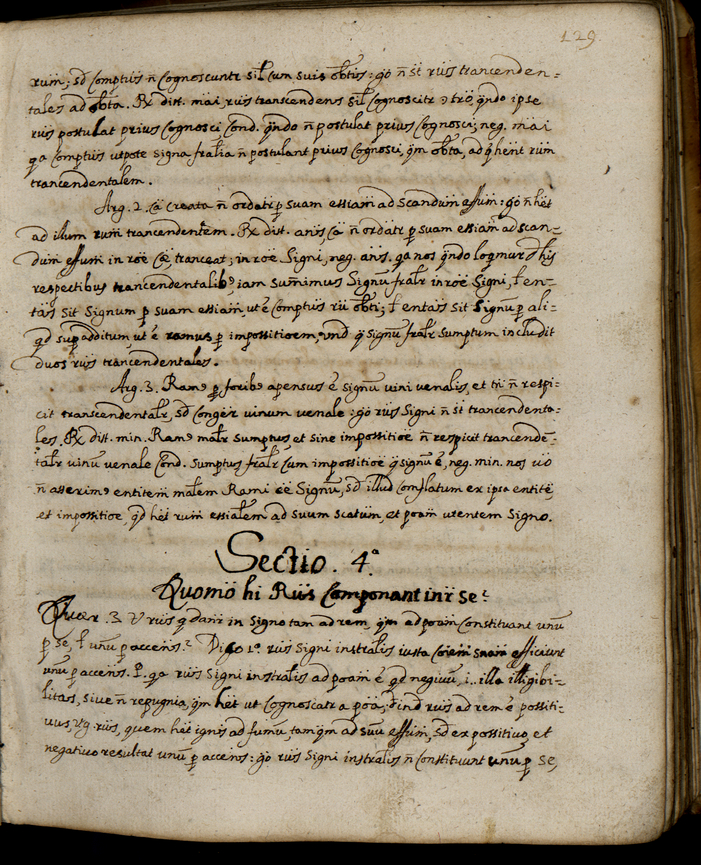 129.
rum; sd Comptus ñ Cognoscuntr sil Cum suis obtis: go ñ st rus trancenden=
tales ad obta. Rx dist. mai, rus transcendens sil Cognoscitr qndo ipse
rus postulat prius Cognosci, Cond. qndo ñ postulat prius Cognosci, neg. mai
qa Comptus utpote signa fralia ñ postulant prius Cognosci, qm obta, ad q hent rum
trancendentalem.
Arg. 2. Ca Creata ñ ordatr p suam essiam ad Scandum effum: go ñ het
ad ilum rum trancendentem. Rx dist. anis Ca ñ ordatr p suam essiam ad scan=
dum effum in roe Cae, tranceat; in roe Signi, neg. ans. qa nos qndo logmur d his
respectibus trancendentalibs, iam sumimus Signu fralr in roe Signi, en=
tas sit Signum p suam essiam, ut e Comptus rii obti; l entas sit Signu p ali=
qd supadditum, ut e ramus p impossitioem, und q signu fralr sumptum includit
duos rus trancendentales.
Arg. 3. Rams p foribs apensus e signu vini venalis, et tn ñ respi=
cit transcendentalr, sd Conger vinum venale: go rus Signi ñ st trancendenta=
les. Rx dist. min. Rams malr sumptus, et sine impossitioe ñ respicit trancende=
talr vinu venale Cond. sumptus fralr Cum impossitioe q signu e, neg. min. nos uo
ñ asserims entitem malem Rami ee Signu, sd illud Conflatum ex ipsa entite,
et impossitioe, qd het rum essialem ad suum scatum, et poam utentem Signo.
Sectio. 4.a
Quomo hi Rus Componant inr se?
Quaer. 3. V rus q danr in Signo tam ad rem, qm ad poam Constituant unu
p se, l unu p accens.? Dico 1.o rus Signi instralis iuxta Coem snam efficiunt
unu p accens. P. qa rus Signi instralis ad poam e qd negivu, i.. illa illigibi=
litas, sive ñ repugnia, qm het ut Cognoscatr a poa; d ind rus ad rem e possiti=
vus, vg. rus, quem het ignis ad fumu, tamqm ad suu effum, sd ex possitivo, et
negativo resultat unu p accens: go rus Signi instralis ñ Constituunt unu p se,